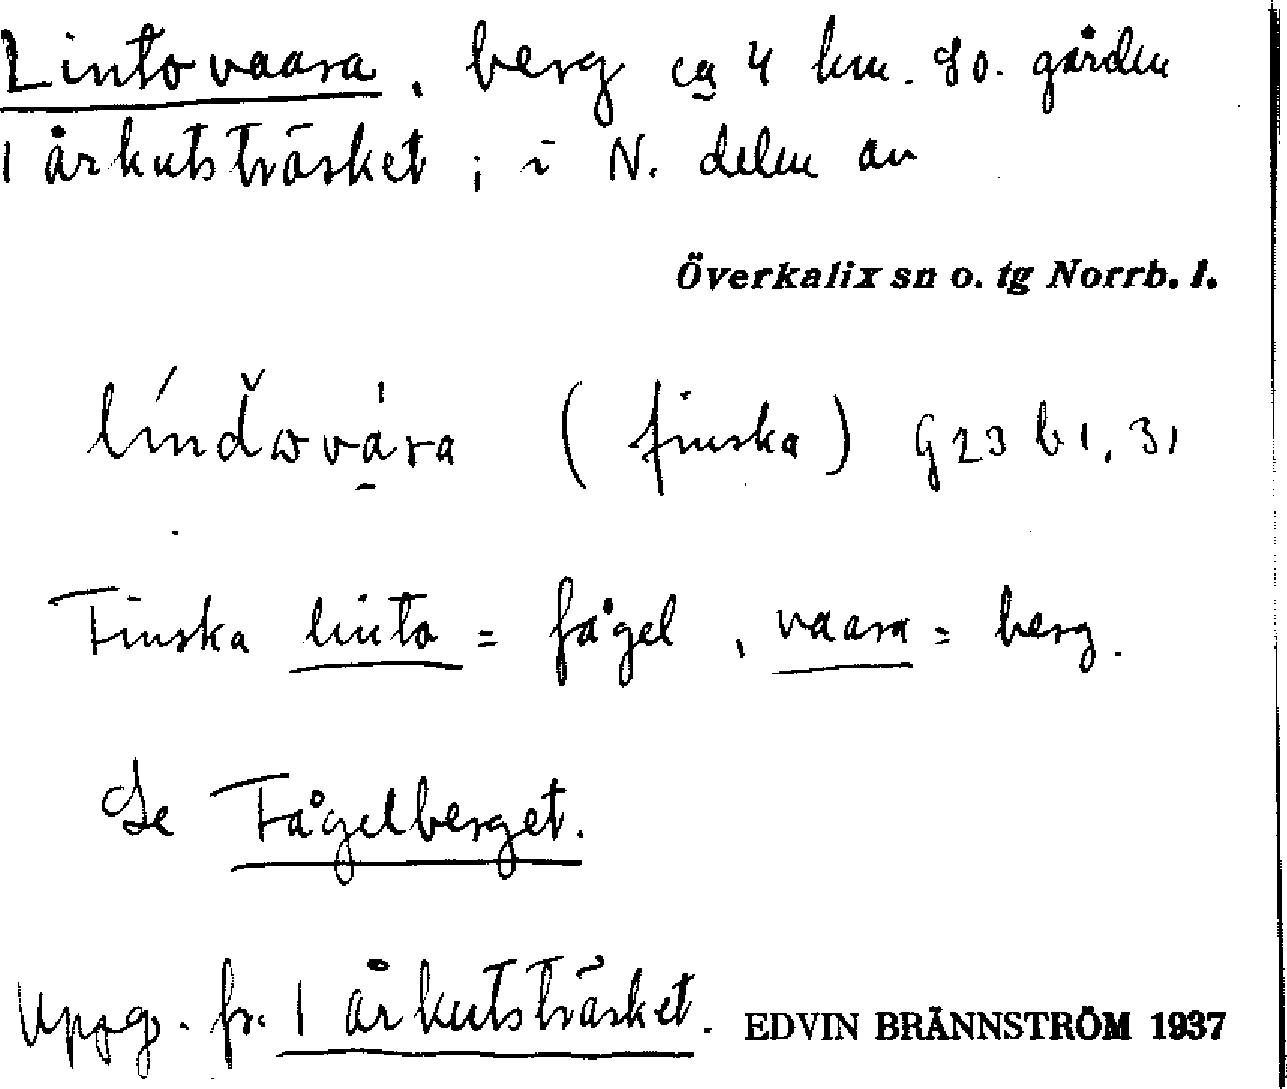 Lintovaara, berg ca 4 km. SO. gården
1 Årkutsträsket; i N. delen av
Överkalix sn o. tg Norrb. l.
(finska) G23 b1, 31
Finska linto = fågel, vaara = berg.
Se Fågelberget.
Uppg. fr. 1 Årkutsträsket. EDVIN BRÄNNSTRÖM 1937